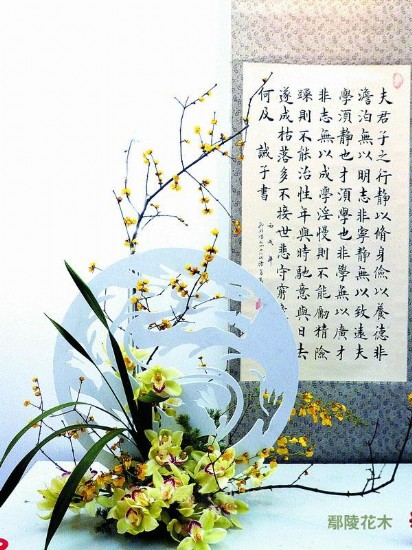 夫君子之行靜以脩身儉以養德非
澹泊無以明志非寧靜無以致遠夫
學須靜也才須學也非學無以廣才
非志無以成學淫慢則不能勵精險
躁則不能治性年與時馳意與日去
遂成枯落多不接世悲守窮
何及 誡子書
丙戌年
鄢陵花木